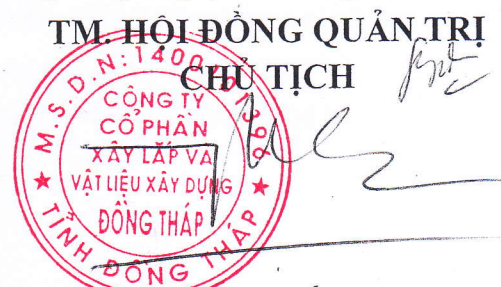 TM. HỘI ĐỒNG QUẢN TRỊ
CHỦ TỊCH
M.S.D.N:1400
CÔNG TY
CỔ PHẦN
XÂY LẮP VÀ
VẬT LIỆU XÂY DỰNG
ĐỒNG THÁP
TỈNH ĐỒNG THÁP